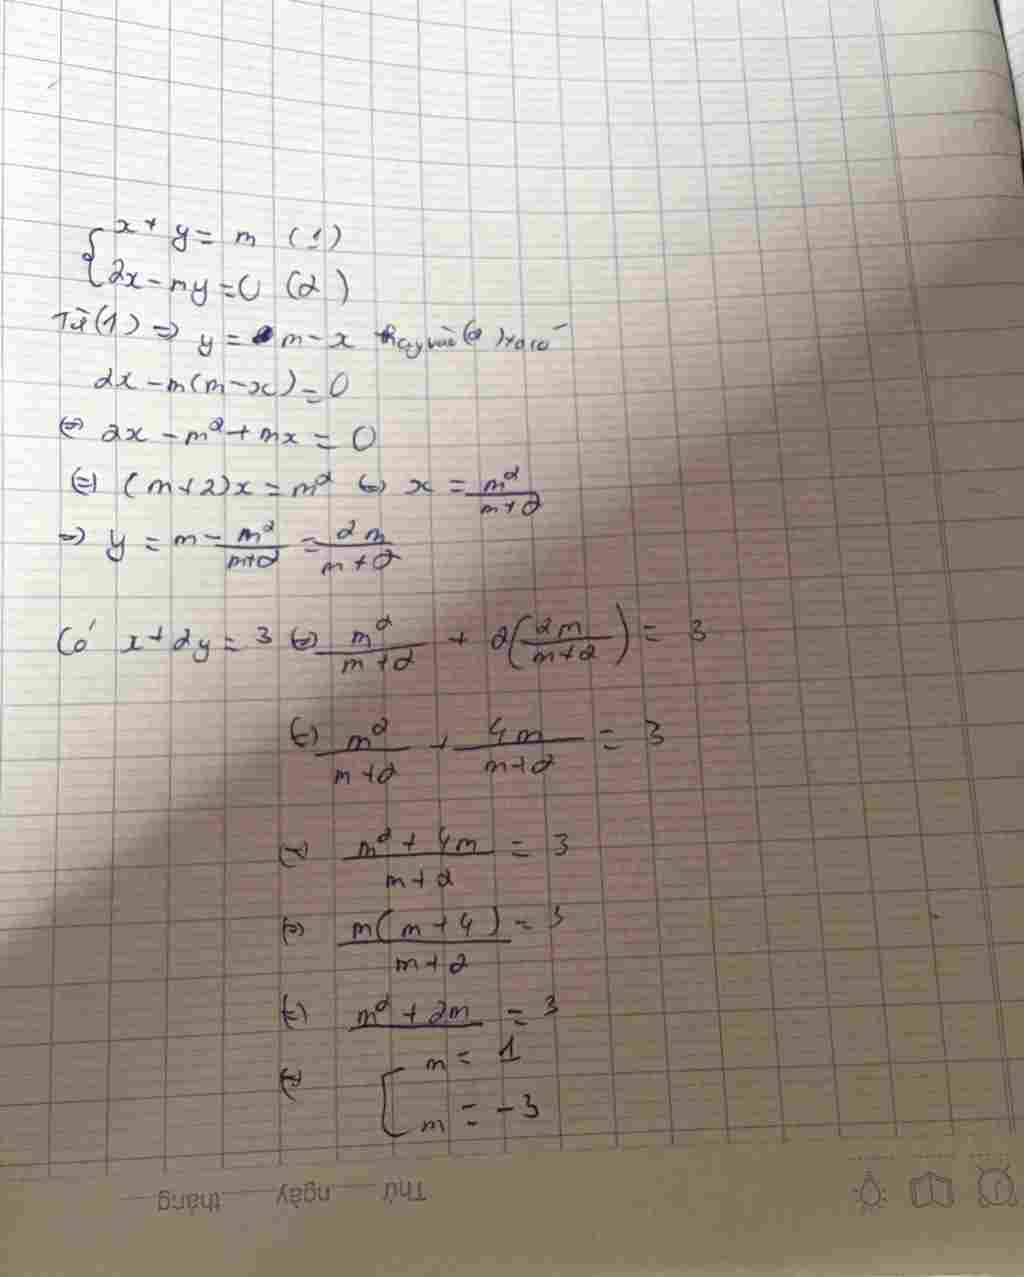 x + y = m (1)
2x - my = 0 (2)
Từ (1) => y = m - x thay vào (2) ta có
2x - m(m - x) = 0
<=> 2x - m² + mx = 0
<=> (m+2)x = m² <=> x = m²/(m+2)
=> y = m - m²/(m+2) = 2m/(m+2)
Có x + 2y = 3 <=> m²/(m+2) + 2(2m/(m+2)) = 3
<=> m²/(m+2) + 4m/(m+2) = 3
<=> (m² + 4m)/(m+2) = 3
<=> m(m+4)/(m+2) = 3
<=> m² + 2m = 3
<=> [ m = 1
m = -3
Thứ ngày tháng